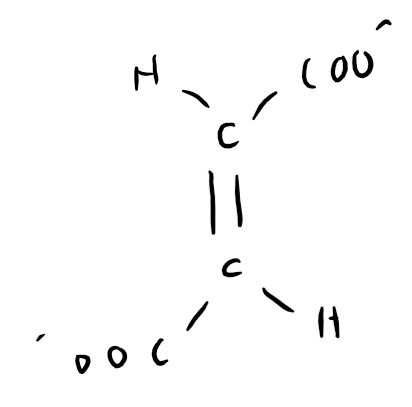 H COO⁻
C
||
C
⁻OOC H